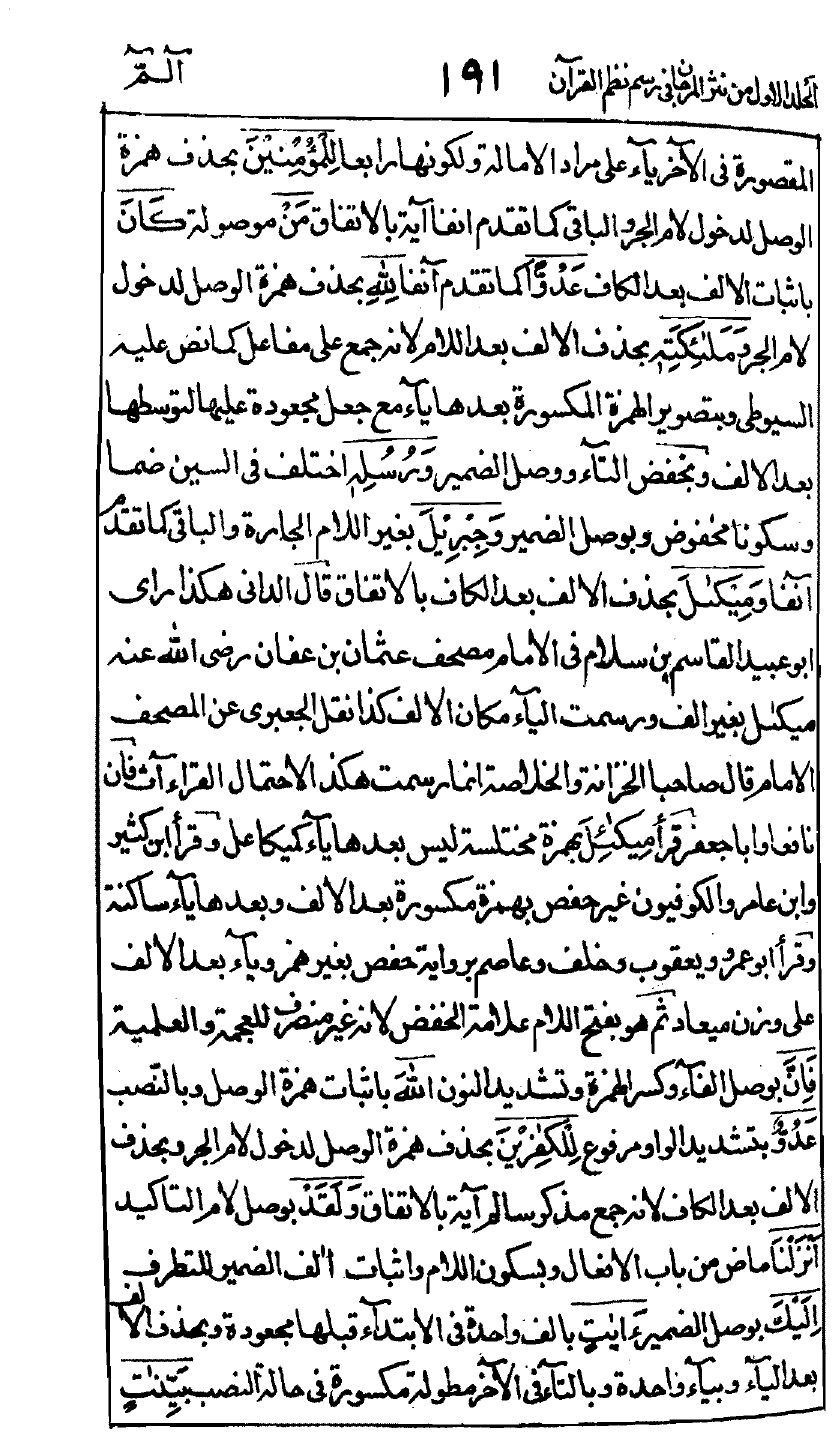 الجلد الاول من نثر المرجان فى رسم نظم القرآن ١٩١ الٓمّٓ
المقصورة فى الآخر ياء على مراد الامالة ولكونها رابعا لِلْمُؤْمِنِيْنَ بحذف همزة
الوصل لدخول لام الجر والباقى كما تقدم انفا آية بالاتفاق مَنْ موصولة كَانَ
باثبات الالف بعد الكاف عَدُوًّا كما تقدم آنفا لِلّٰهِ بحذف همزة الوصل لدخول
لام الجر وَمَلٰئِكَتِهٖ بحذف الالف بعد اللام لانه جمع على مفاعل كما نص عليه
السيوطى وبتصوير الهمزة المكسورة بعدها ياء مع جعل مجعودة عليها لتوسطها
بعد الالف وبخفض التاء ووصل الضمير وَرُسُلِهٖ اختلف فى السين ضما
وسكونا مخفوض وبوصل الضمير وَجِبْرِيْلَ بغير اللام الجارة والباقى كما تقدم
آنفا وَمِيْكٰىلَ بحذف الالف بعد الكاف بالاتفاق قال الدانى هكذا راى
ابو عبيد القاسم بن سلام فى الامام مصحف عثمان بن عفان رضى الله عنه
ميكىٰل بغير الف ورسمت الياء مكان الالف كذا نقل الجعبرى عن المصحف
الامام قال صاحبا الخزانة والخلاصة انما رسمت هكذا لاحتمال القراءآت فان
نافعا وابا جعفر قرأ مِيكٰئِلَ بهمزة مختلسة ليس بعدها ياء كميكاعل وقرأ ابن كثير
وابن عامر والكوفيون غير حفص بهمزة مكسورة بعد الالف وبعدها ياء ساكنة
وقرأ ابو عمرو ويعقوب وخلف وعاصم برواية حفص بغير همز وياء بعد الالف
على وزن ميعاد ثم هو بفتح اللام علامة الخفض لانه غير منصرف للعجمة والعلمية
فَاِنَّ بوصل الفاء وكسر الهمزة وتشديد النون اللّٰهَ باثبات همزة الوصل وبالنصب
عَدُوٌّ بتشديد الواو مرفوع لِلْكٰفِرِيْنَ بحذف همزة الوصل لدخول لام الجر وبحذف
الالف بعد الكاف لانه جمع مذكر سالم آية بالاتفاق وَلَقَدْ بوصل لام التاكيد
اَنْزَلْنَا ماض من باب الافعال وبسكون اللام واثبات الف الضمير للتطرف
اِلَيْكَ بوصل الضمير ءَايٰتٍ بالف واحدة فى الابتداء قبلها مجعودة وبحذف الالف
بعد الياء وبياء واحدة وبالتاء فى الآخر مطولة مكسورة فى حالة النصب بَيِّنٰتٍ